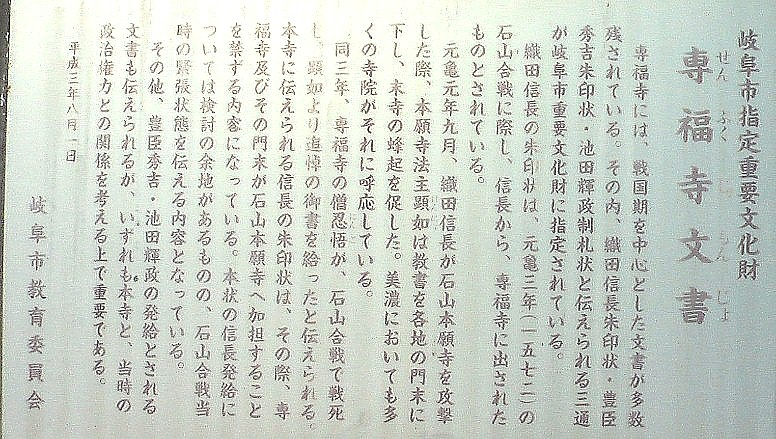 岐阜市指定重要文化財
せんふくじもんじょ
専福寺文書
専福寺には、戦国期を中心とした文書が多数
残されている。その内、織田信長朱印状・豊臣
秀吉朱印状・池田輝政制札状と伝えられる三通
が岐阜市重要文化財に指定されている。
織田信長の朱印状は、元亀三年(一五七二)の
石山合戦に際し、信長から、専福寺に出された
ものとされている。
元亀元年九月、織田信長が石山本願寺を攻撃
した際、本願寺法主顕如は教書を各地の門末に
下し、末寺の蜂起を促した。美濃においても多
くの寺院がそれに呼応している。
同三年、専福寺の僧忍悟が、石山合戦で戦死
し、顕如より追悼の御書を給ったと伝えられる。
本寺に伝えられる信長の朱印状は、その際、専
福寺及びその門末が石山本願寺へ加担すること
を禁ずる内容になっている。本状の信長発給に
ついては検討の余地があるものの、石山合戦当
時の緊張状態を伝える内容となっている。
その他、豊臣秀吉・池田輝政の発給とされる
文書も伝えられるが、いずれも本寺と、当時の
政治権力との関係を考える上で重要である。
平成三年八月一日
岐阜市教育委員会